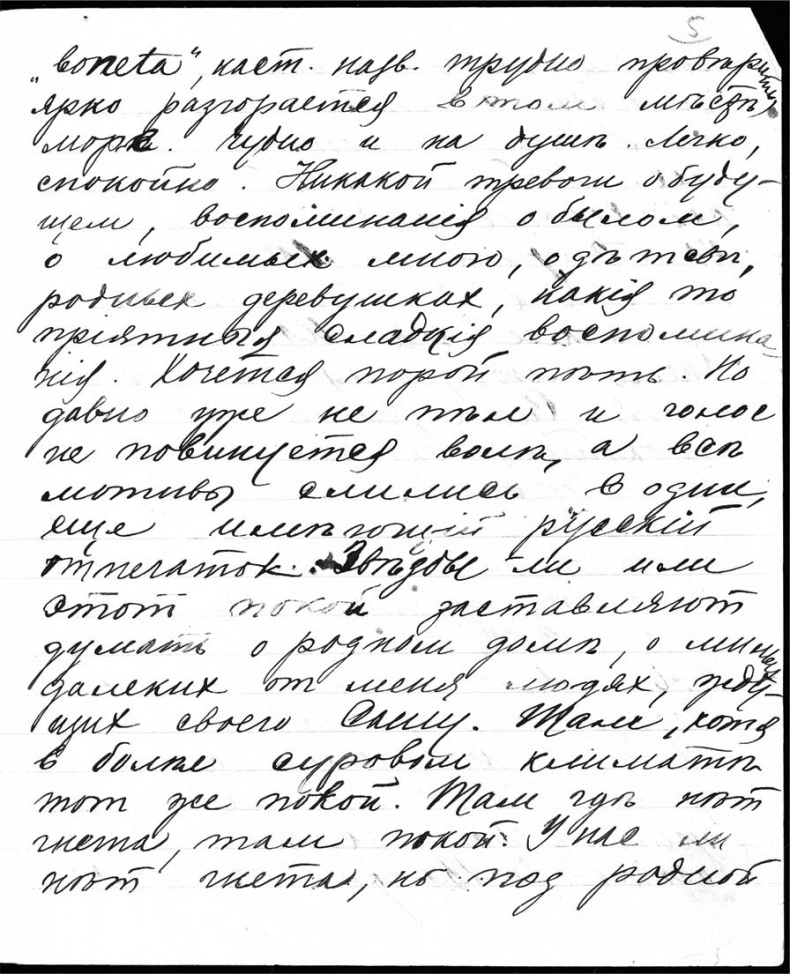 5
„boneta“, наст. назв. трудно проверить
ярко разгорается в том мѣстѣ
моря. Чудно и на душѣ. Легко,
спокойно. Никакой тревоги о буду-
щем, воспоминанія о былом,
о любимых мною, о дѣтст.,
родных деревушках, какія то
пріятныя сладкія воспомина-
нія. Хочется порой пѣть. Но
давно уже не пѣл и голос
не повинуется волѣ, а всѣ
мотивы слились в один,
еще имѣющій русскій
отпечаток. Звѣзды ли или
этот покой заставляют
думать о родном домѣ, о милых
далеких от меня людях, жду-
щих своего Сашу. Там, хотя
в болѣе суровом климатѣ
тот же покой. Там гдѣ нѣт
гнета, там покой. У нас ли
нѣт гнета, но под родной